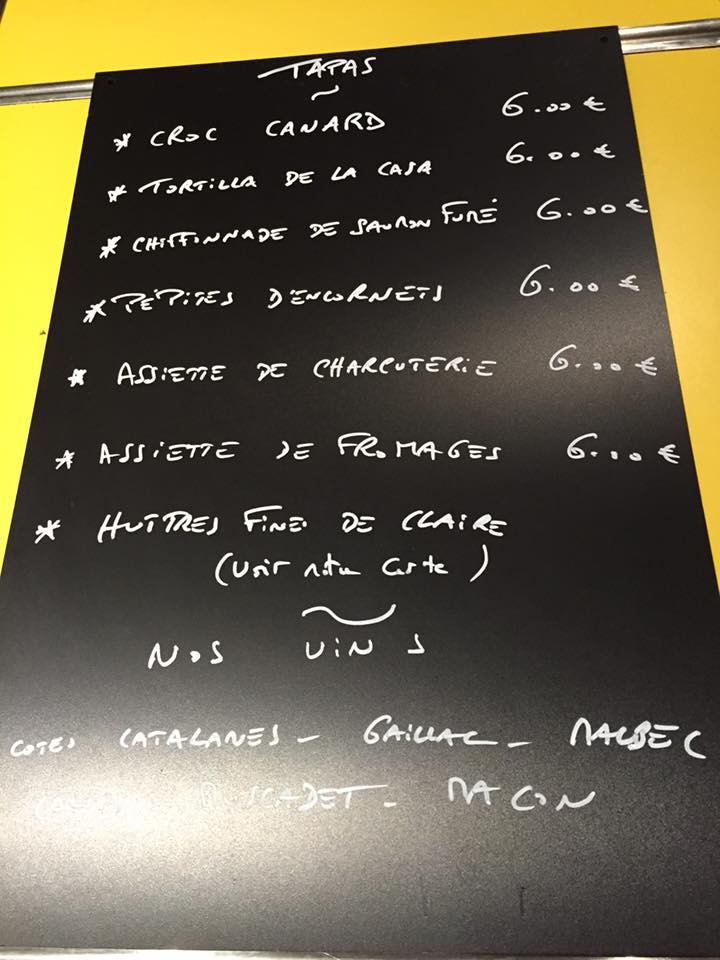 TAPAS
~
* CROC CANARD 6.00 €
* TORTILLA DE LA CASA 6.00 €
* CHIFFONNADE DE SAUMON FUMÉ 6.00 €
* PÉPITES D'ENCORNETS 6.00 €
* ASSIETTE DE CHARCUTERIE 6.00 €
* ASSIETTE DE FROMAGES 6.00 €
* HUITRES FINES DE CLAIRE
(Voir notre carte)
~
NOS VINS
COTES CATALANES - GAILLAC - MALBEC
MUSCADET - MACON